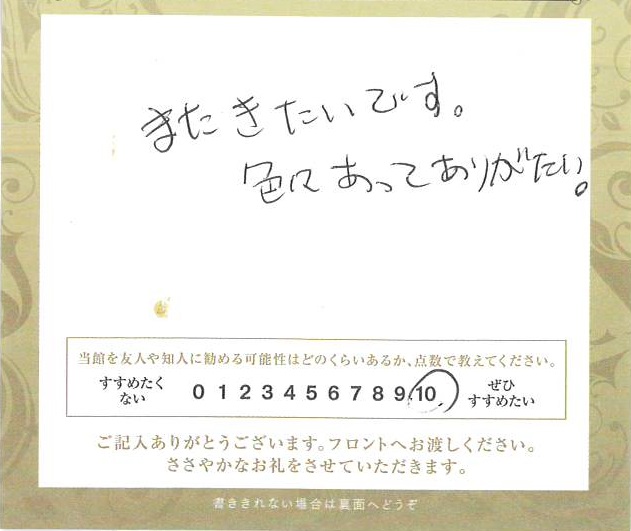 またきたいです。
色々あってありがたい。
当館を友人や知人に勧める可能性はどのくらいあるか、点数で教えてください。
すすめたく
ない
0 1 2 3 4 5 6 7 8 9 10
ぜひ
すすめたい
ご記入ありがとうございます。フロントへお渡しください。
ささやかなお礼をさせていただきます。
書ききれない場合は裏面へどうぞ